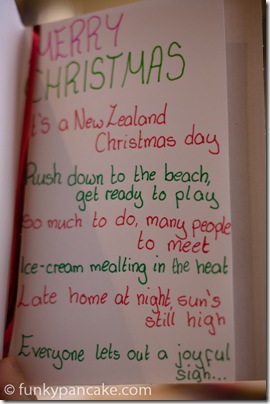 MERRY
CHRISTMAS
It's a New Zealand
Christmas day
Rush down to the beach,
get ready to play
So much to do, many people
to meet
Ice-cream mealting in the heat
Late home at night, sun's
still high
Everyone lets out a joyful
sigh...
© funkypancake.com